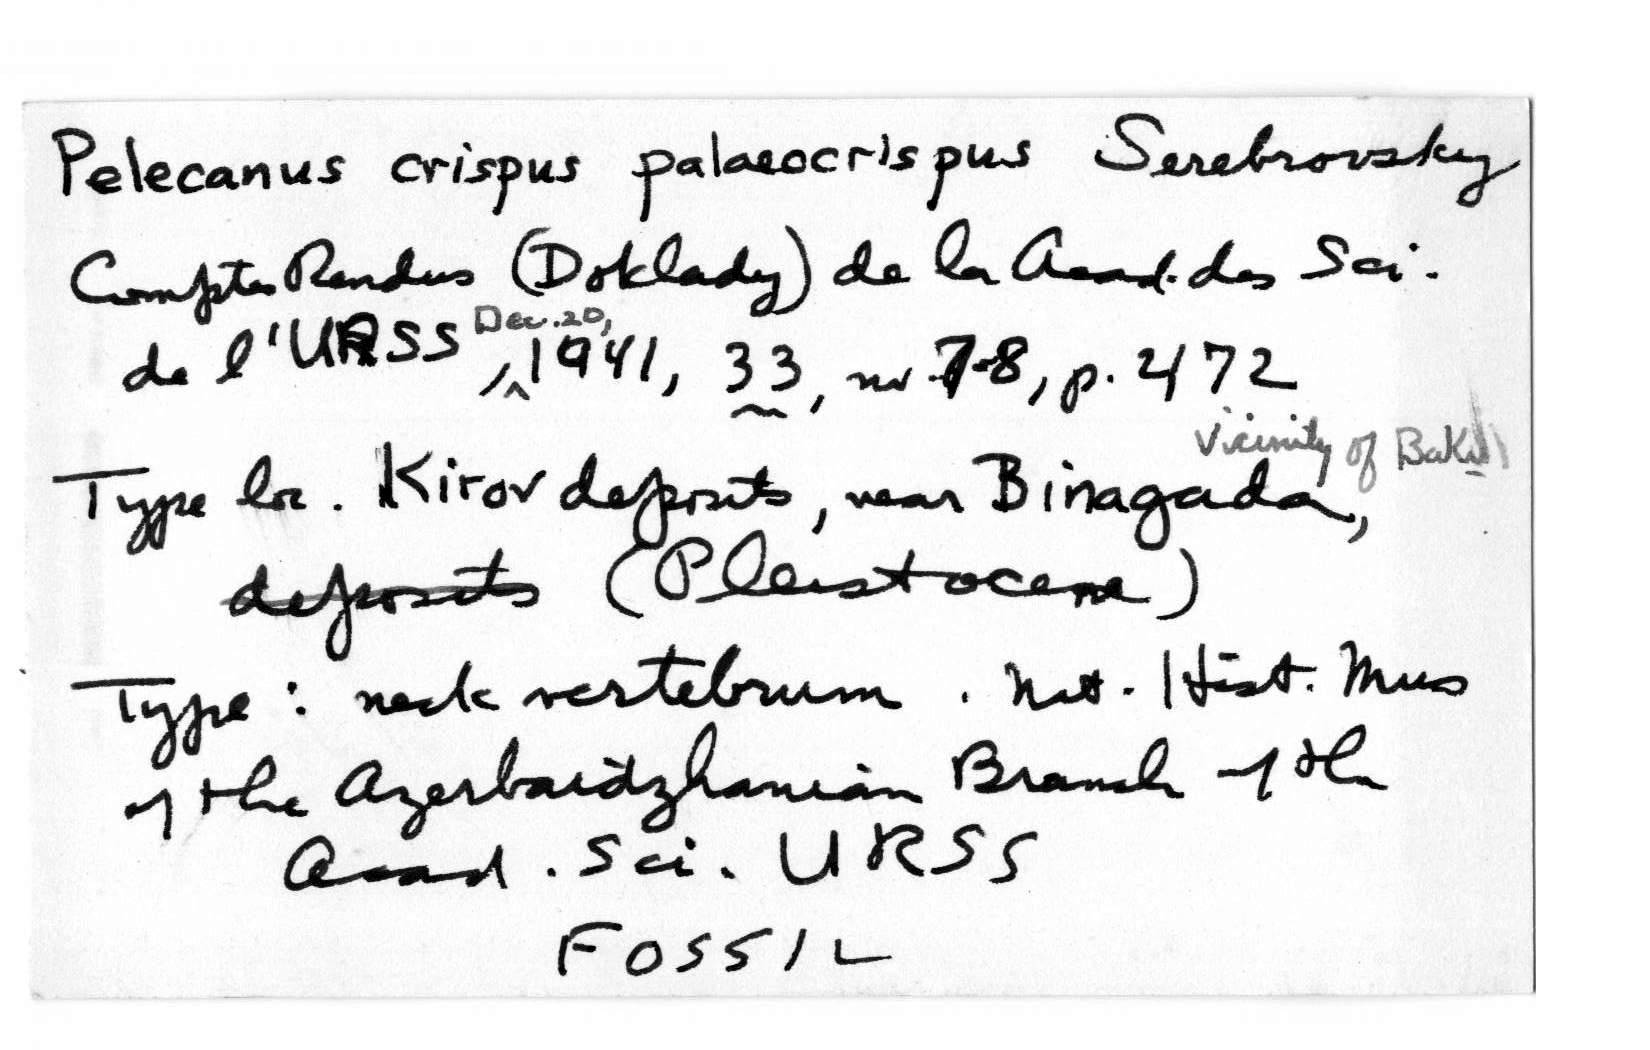 Pelecanus crispus palaeocrispus Serebrovsky
Comptes Rendus (Doklady) de la Acad. des Sci.
de l'URSS, Dec. 20, 1941, 33, no. 7-8, p. 472
Type loc. Kirov deposits, near Binagada, vicinity of Baku
deposits (Pleistocene)
Type: neck vertebrum. Nat. Hist. Mus
of the Azerbaidzhanian Branch of the
Acad. Sci. URSS
FOSSIL